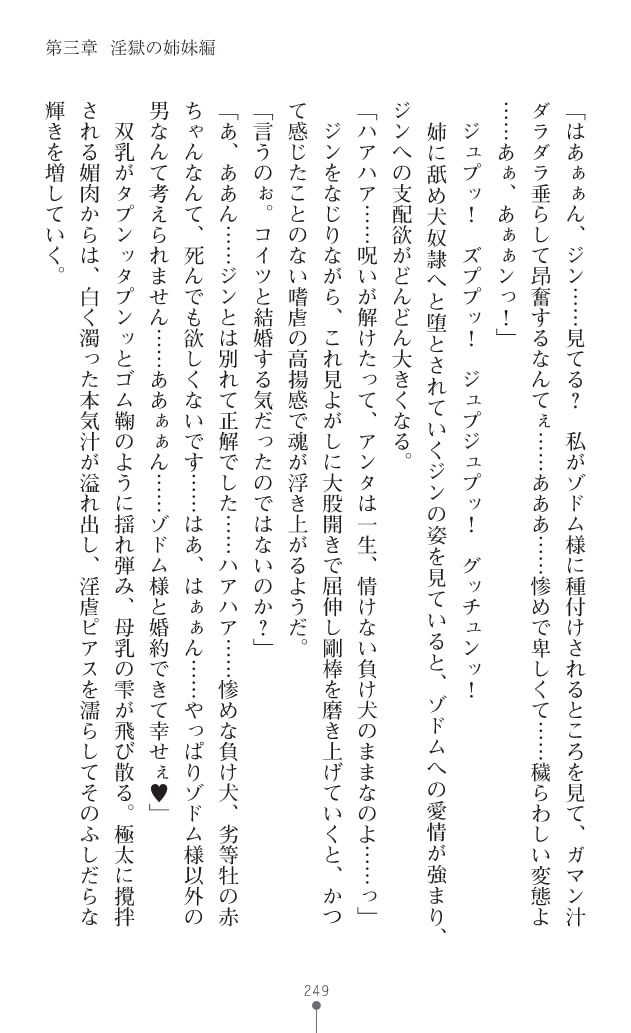 第三章 淫獄の姉妹編
「はあぁぁん、ジン……見てる？ 私がゾドム様に種付けされるところを見て、ガマン汁
ダラダラ垂らして昂奮するなんてぇ……あああ……惨めで卑しくて……穢らわしい変態よ
……あぁ、あぁぁンっ！」
ジュプッ！ ズププッ！ ジュプジュプッ！ グッチュンッ！
姉に舐め犬奴隷へと堕とされていくジンの姿を見ていると、ゾドムへの愛情が強まり、
ジンへの支配欲がどんどん大きくなる。
「ハアハア……呪いが解けたって、アンタは一生、情けない負け犬のままなのよ……っ」
ジンをなじりながら、これ見よがしに大股開きで屈伸し剛棒を磨き上げていくと、かつ
て感じたことのない嗜虐の高揚感で魂が浮き上がるようだ。
「言うのぉ。コイツと結婚する気だったのではないのか？」
「あ、ああん……ジンとは別れて正解でした……ハアハア……惨めな負け犬、劣等牡の赤
ちゃんなんて、死んでも欲しくないです……はあ、はぁぁん……やっぱりゾドム様以外の
男なんて考えられません……ああぁぁん……ゾドム様と婚約できて幸せぇ♥」
双乳がタプンッタプンッとゴム鞠のように揺れ弾み、母乳の雫が飛び散る。極太に攪拌
される媚肉からは、白く濁った本気汁が溢れ出し、淫虐ピアスを濡らしてそのふしだらな
輝きを増していく。
249